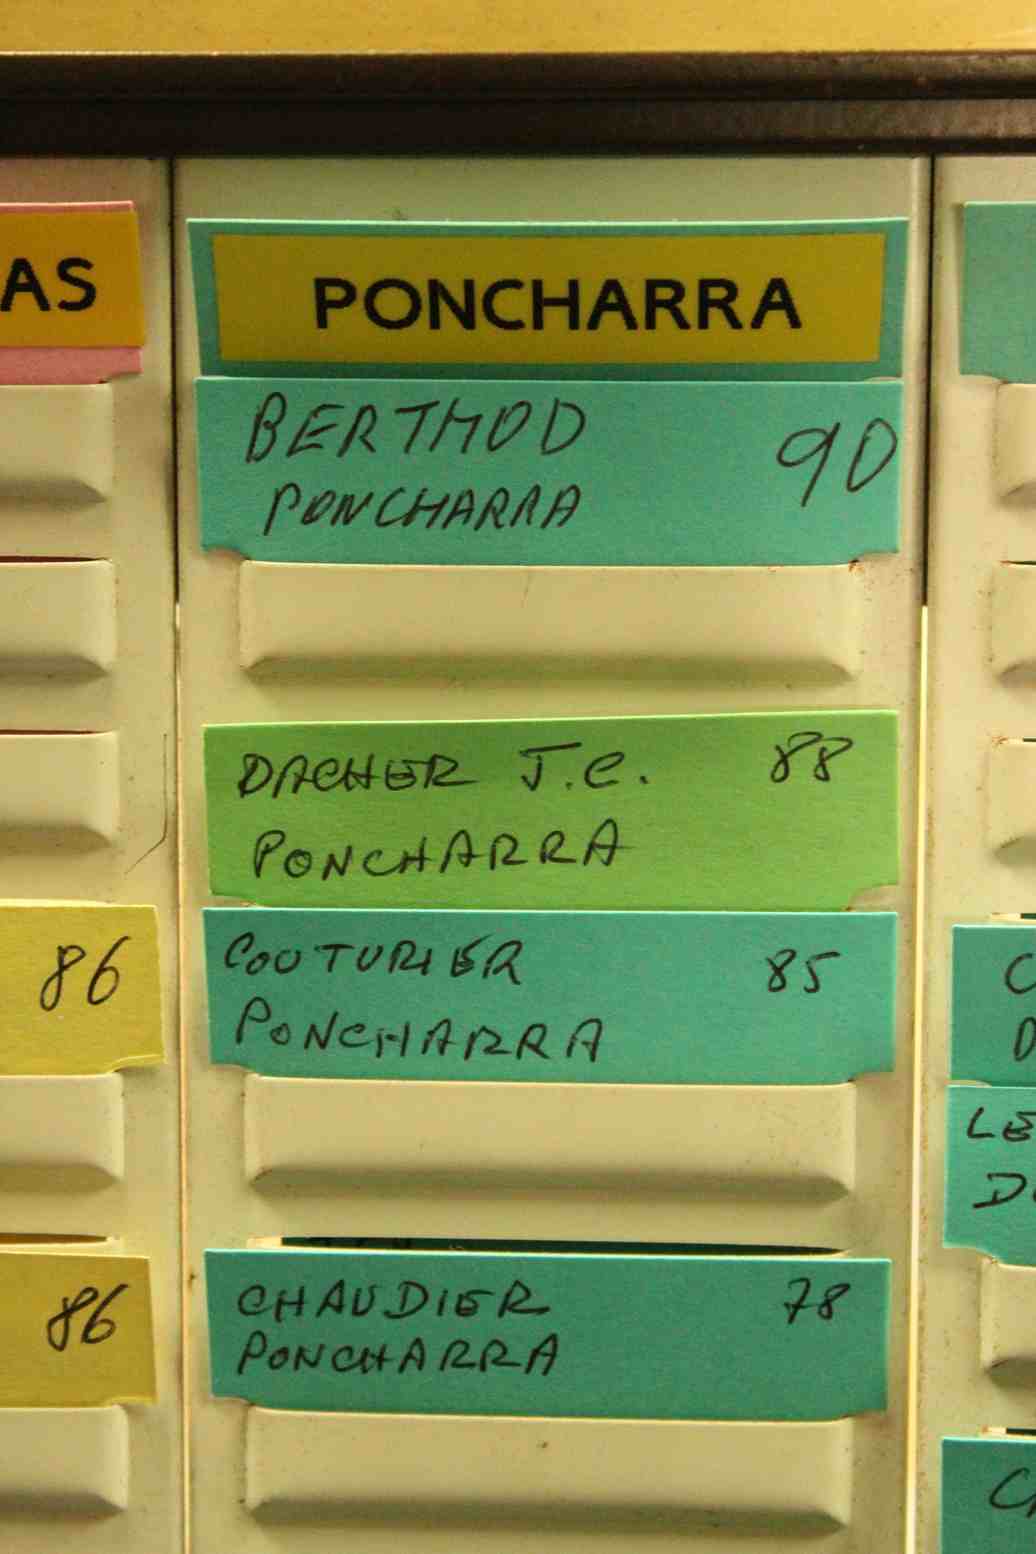 AS
PONCHARRA
BERTHOD 90
PONCHARRA
DACHER J.C. 88
PONCHARRA
COUTURIER 85
PONCHARRA
CHAUDIER 78
PONCHARRA
86
86
C
D
LE
D